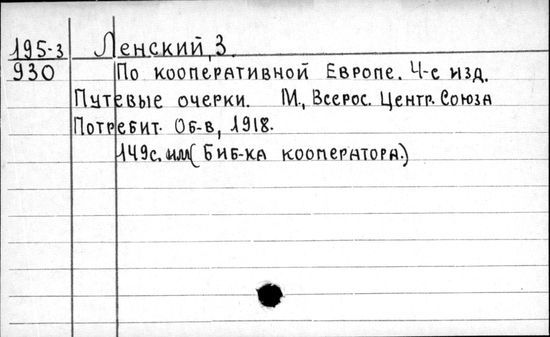 195-3 Ленский, З.
930 По кооперативной Европе. 4-е изд.
Путевые очерки. М., Всерос. Центр. Союза
Потребит. Об-в, 1918.
149с. илл (Биб-ка кооператора.)